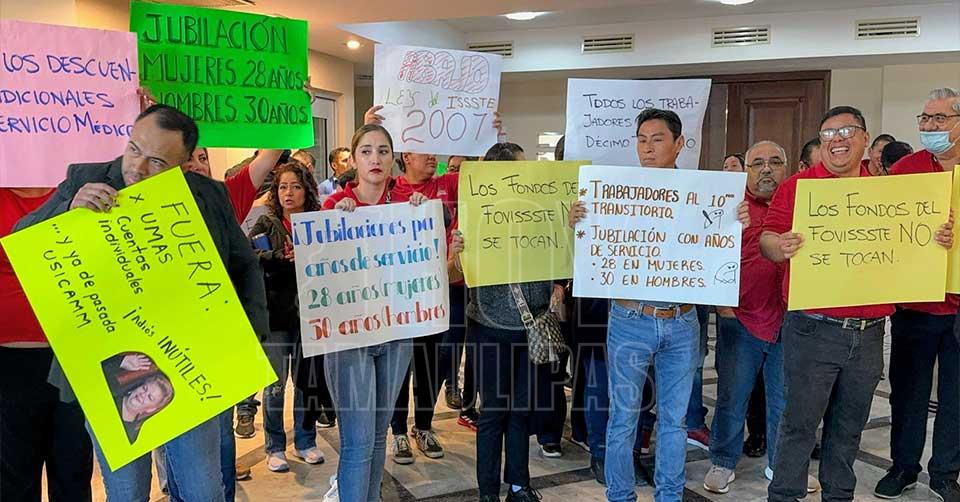 LOS DESCUEN-
NDICIONALES
SERVICIO MÉDICO
JUBILACIÓN
MUJERES 28 AÑOS
HOMBRES 30 AÑOS
LEY del ISSSTE
2007
TODOS LOS TRABA-
JADORES
DÉCIMO
FUERA:
X UMAS
Cuentas
individuales
...y ya de pasada
USICAMM
¡indios INÚTILES!
¡Jubilaciones por
años de servicio!
28 años/mujeres
30 años/hombres
LOS FONDOS DEL
FOVISSSTE NO
SE TOCAN.
* TRABAJADORES AL 10º
TRANSITORIO.
* JUBILACIÓN CON AÑOS
DE SERVICIO.
• 28 EN MUJERES.
• 30 EN HOMBRES.
LOS FONDOS DEL
FOVISSSTE NO
SE TOCAN.
TAMAULIPAS